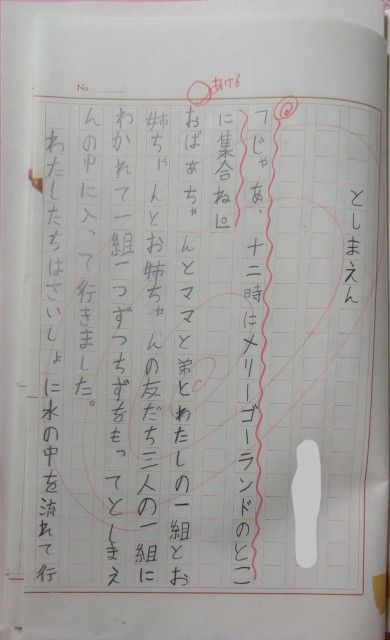 No.
あける
としまえん
「じゃあ、十二時にメリーゴーランドのとこ
に集合ね」
おばあちゃんとママと弟とわたしの一組とお
姉ちゃんとお姉ちゃんの友だち三人の一組に
わかれて一組一つずつちずをもってとしまえ
んの中に入って行きました。
わたしたちはさいしょに水の中を流れて行